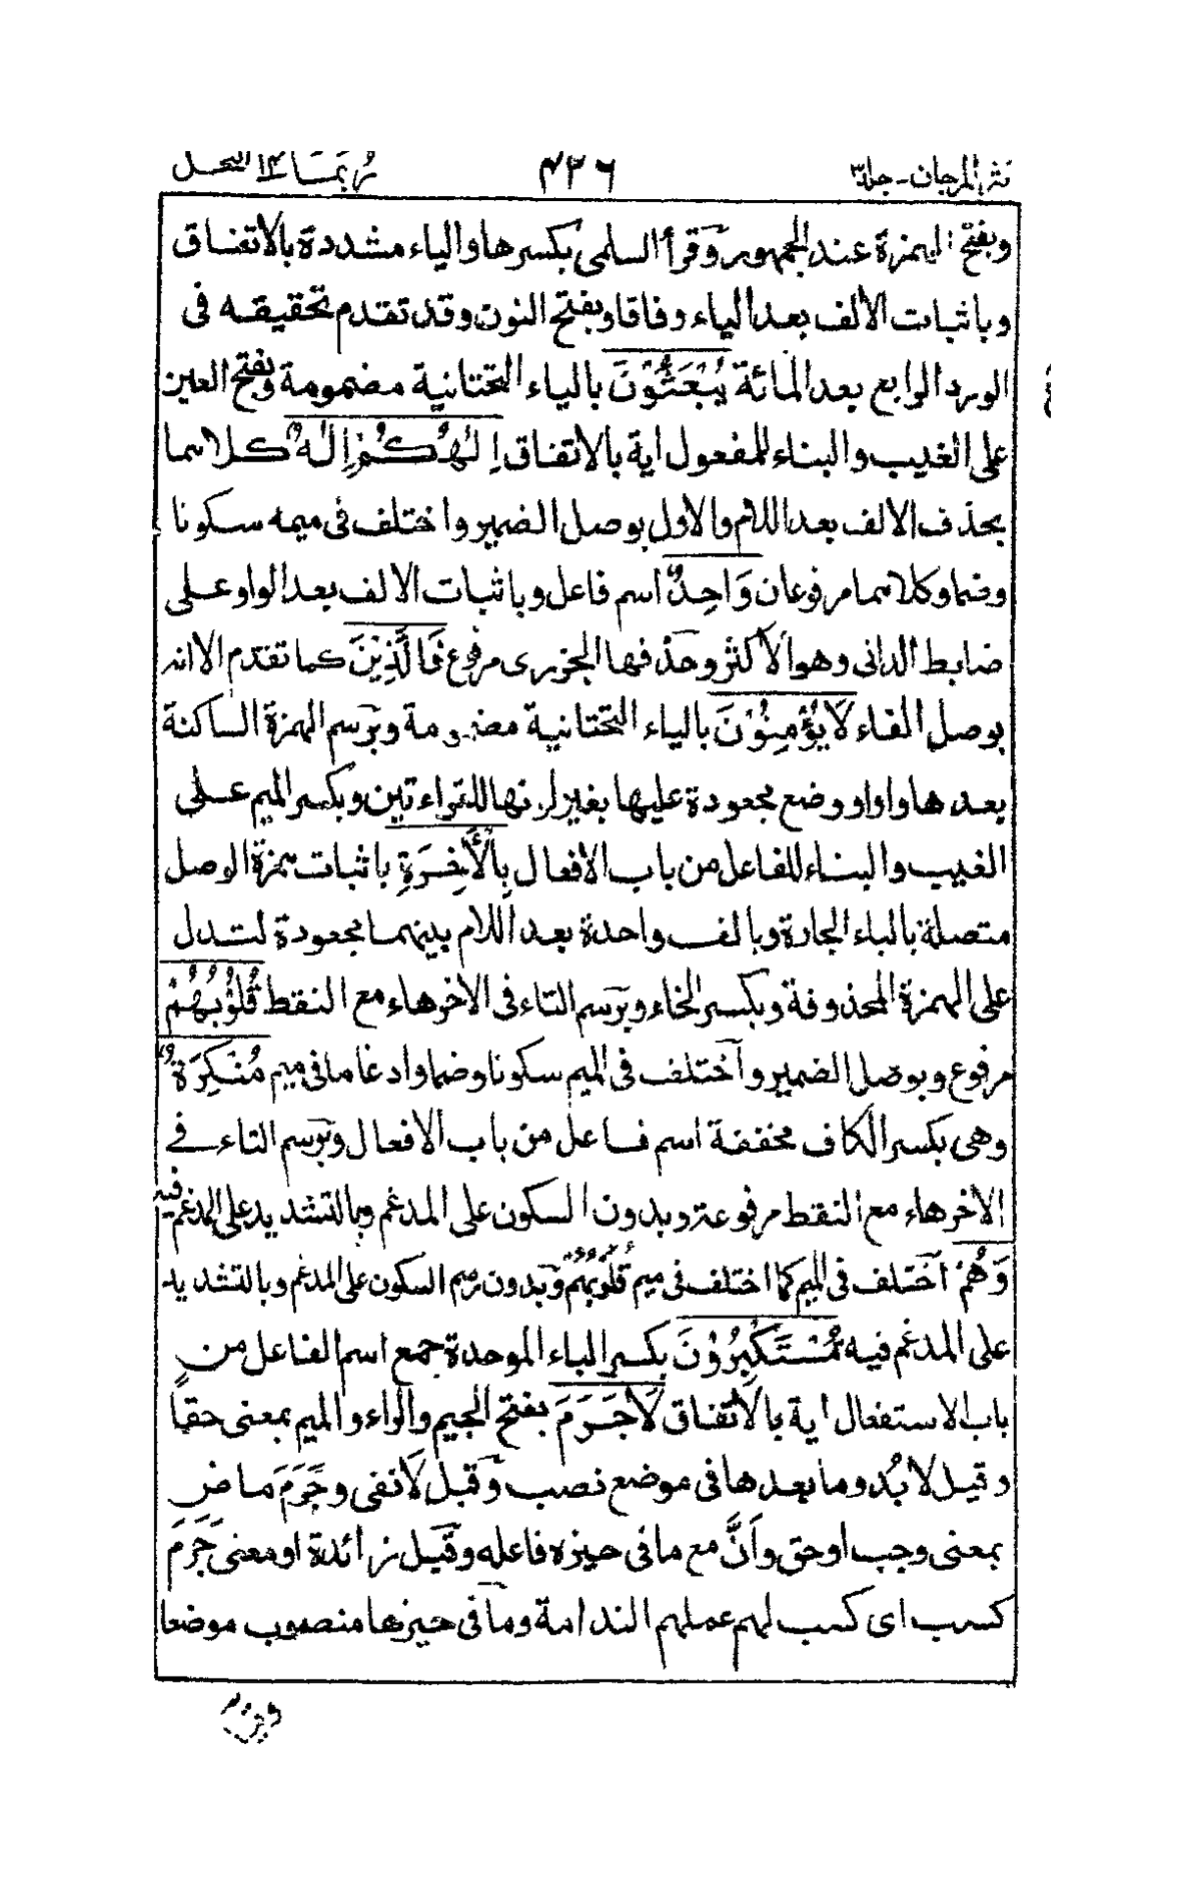 نثر المرجان - جلد٣ ٤٣٦ ربما ١٤ النحل
وبفتح الهمزة عند الجمهور وقرأ السلمى بكسرها والياء مشددة بالاتفاق
وباثبات الألف بعد الياء وفاقا وبفتح النون وقد تقدم تحقيقه فى
الورد الرابع بعد المائة يُبْعَثُوْنَ بالياء التحتانية مضمومة وبفتح العين
على الغيب والبناء للمفعول اية بالاتفاق اِلٰهُكُمْ اِلٰهٌ كلاهما
بحذف الالف بعد اللام والاول بوصل الضمير واختلف فى ميمه سكونا
وضما وكلاهما مرفوعان وَاحِدٌ اسم فاعل وباثبات الالف بعد الواو على
ضابط الدانى وهو الاكثر وحذفها الجزرى مرفوع فَالَّذِيْنَ كما تقدم الا انه
بوصل الفاء لَا يُؤْمِنُوْنَ بالياء التحتانية مضمومة وبرسم الهمزة الساكنة
بعدها واوا ووضع مجعودة عليها بغير لونها للقراءتين وبكسر الميم على
الغيب والبناء للفاعل من باب الافعال بِالْاٰخِرَةِ باثبات همزة الوصل
متصلة بالباء الجارة وبالف واحدة بعد اللام بينهما مجعودة لتدل
على الهمزة المحذوفة وبكسر الخاء وبرسم التاء فى الاخر هاء مع النقط قُلُوْبُهُمْ
مرفوع وبوصل الضمير واختلف فى الميم سكونا وضما وادغاما فى ميم مُنْكِرَةٌ
وهى بكسر الكاف مخففة اسم فاعل من باب الافعال وبرسم التاء فے
الاخر هاء مع النقط مرفوعة وبدون السكون على المدغم وبالتشديد على المدغم فيه
وَهُمْ اختلف فى الميم كما اختلف فى ميم قُلُوْبُهُمْ وبدون رسم السكون على المدغم وبالتشديد
على المدغم فيه مُّسْتَكْبِرُوْنَ بكسر الباء الموحدة جمع اسم الفاعل من
باب الاستفعال اية بالاتفاق لَاجَرَمَ بفتح الجيم والراء والميم بمعنى حقا
وقيل لا بُد وما بعدها فى موضع نصب وقيل لَا نفى وجَرَمَ ماضٍ
بمعنى وجب او حق واَنَّ مع ما فى حيزه فاعله وقيل زائدة او معنى جَرَمَ
كسب اى كسب لهم عملهم الندامة وما فى حيزها منصوب موضعا